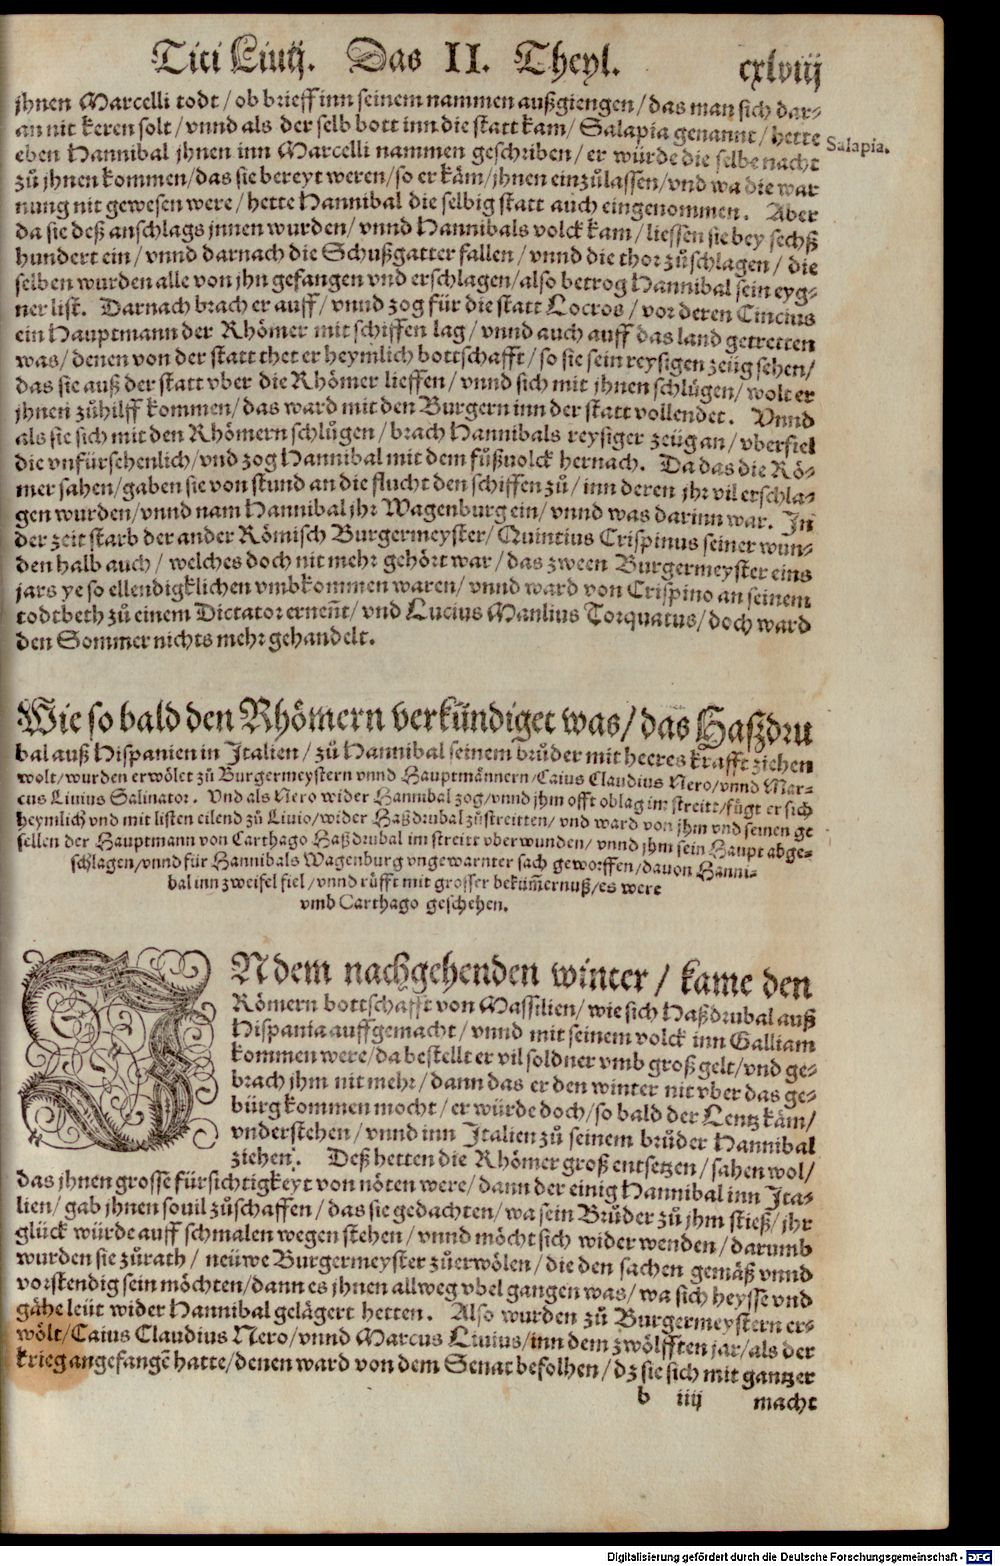 Titi Liuij. Das II. Theyl. cxlviij
jhnen Marcelli todt / ob brieff inn seinem nammen außgiengen / das man sich dar-
an nit keren solt / vnnd als der selb bott inn die statt kam / Salapia genannt / hette
Salapia.
eben Hannibal jhnen inn Marcelli nammen geschriben / er würde die selbe nacht
zů jhnen kommen / das sie bereyt weren / so er käm / jhnen einzůlassen / vnd wa die war
nung nit gewesen were / hette Hannibal die selbig statt auch eingenommen. Aber
da sie deß anschlags jnnen wurden / vnnd Hannibals volck kam / liessen sie bey sechß
hundert ein / vnnd darnach die Schußgatter fallen / vnnd die thor zůschlagen / die
selben wurden alle von jhn gefangen vnd erschlagen / also betrog Hannibal sein eyg-
ner list. Darnach brach er auff / vnnd zog für die statt Locros / vor deren Cincius
ein Hauptmann der Rhömer mit schiffen lag / vnnd auch auff das land getretten
was / denen von der statt thet er heymlich bottschafft / so sie sein reysigen zeüg sehen /
das sie auß der statt vber die Rhömer lieffen / vnnd sich mit jhnen schlůgen / wolt er
jhnen zůhilff kommen / das ward mit den Burgern inn der statt vollendet. Vnnd
als sie sich mit den Rhömern schlůgen / brach Hannibals reysiger zeüg an / vberfiel
die vnfürsehenlich / vnd zog Hannibal mit dem fůßuolck hernach. Da das die Rö-
mer sahen / gaben sie von stund an die flucht den schiffen zů / inn deren jhr vil erschla-
gen wurden / vnnd nam Hannibal jhr Wagenburg ein / vnnd was darinn war. In
der zeit starb der ander Römisch Burgermeyster / Quintius Crispinus seiner wun-
den halb auch / welches doch nit mehr gehört war / das zween Burgermeyster eins
jars ye so ellendigklichen vmbkommen waren / vnnd ward von Crispino an seinem
todtbeth zů einem Dictator ernent̃ / vnd Lucius Manlius Torquatus / doch ward
den Sommer nichts mehr gehandelt.
Wie so bald den Rhömern verkündiget was / das Haßdru
bal auß Hispanien in Italien / zů Hannibal seinem brůder mit heeres krafft ziehen
wolt / wurden erwölet zů Burgermeystern vnnd Hauptmännern / Caius Claudius Nero / vnnd Mar-
cus Liuius Salinator. Vnd als Nero wider Hannibal zog / vnnd jhm offt oblag im streitt / fügt er sich
heymlich vnd mit listen eilend zů Liuio / wider Haßdrubal zůstreitten / vnd ward von jhm vnd seinen ge
sellen der Hauptmann von Carthago Haßdrubal im streitt vberwunden / vnnd jhm sein Haupt abge-
schlagen / vnnd für Hannibals Wagenburg vngewarnter sach geworffen / dauon Hanni-
bal inn zweifel fiel / vnnd růfft mit grosser beküm̃ernuß / es were
vmb Carthago geschehen.
IN dem nachgehenden winter / kame den
Römern bottschafft von Massilien / wie sich Haßdrubal auß
Hispania auffgemacht / vnnd mit seinem volck inn Galliam
kommen were / da bestellt er vil soldner vmb groß gelt / vnd ge-
brach jhm nit mehr / dann das er den winter nit vber das ge-
bürg kommen mocht / er würde doch / so bald der Lentz käm /
vnderstehen / vnnd inn Italien zů seinem brůder Hannibal
ziehen. Deß hetten die Rhömer groß entsetzen / sahen wol /
das jhnen grosse fürsichtigkeyt von nöten were / dann der einig Hannibal inn Ita-
lien / gab jhnen souil zůschaffen / das sie gedachten / wa sein Brůder zů jhm stieß / jhr
glück würde auff schmalen wegen stehen / vnnd möcht sich wider wenden / darumb
wurden sie zůrath / neüwe Burgermeyster zůerwölen / die den sachen gemäß vnnd
vorstendig sein möchten / dann es jhnen allweg vbel gangen was / wa sich heysse vnd
gähe leüt wider Hannibal gelägert hetten. Also wurden zů Burgermeystern er-
wölt / Caius Claudius Nero / vnnd Marcus Liuius / inn dem zwölfften jar / als der
krieg angefangẽ hatte / denen ward von dem Senat befolhen / dz sie sich mit gantzer
b iiij macht
Digitalisierung gefördert durch die Deutsche Forschungsgemeinschaft - DFG